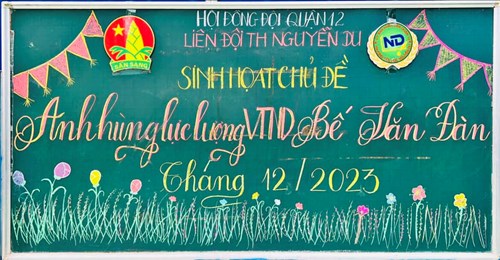 HỘI ĐỒNG ĐỘI QUẬN 12
LIÊN ĐỘI TH NGUYỄN DU
SẴN SÀNG
ND
SINH HOẠT CHỦ ĐỀ
Anh hùng lực lượng VTND Bế Văn Đàn
Tháng 12/2023